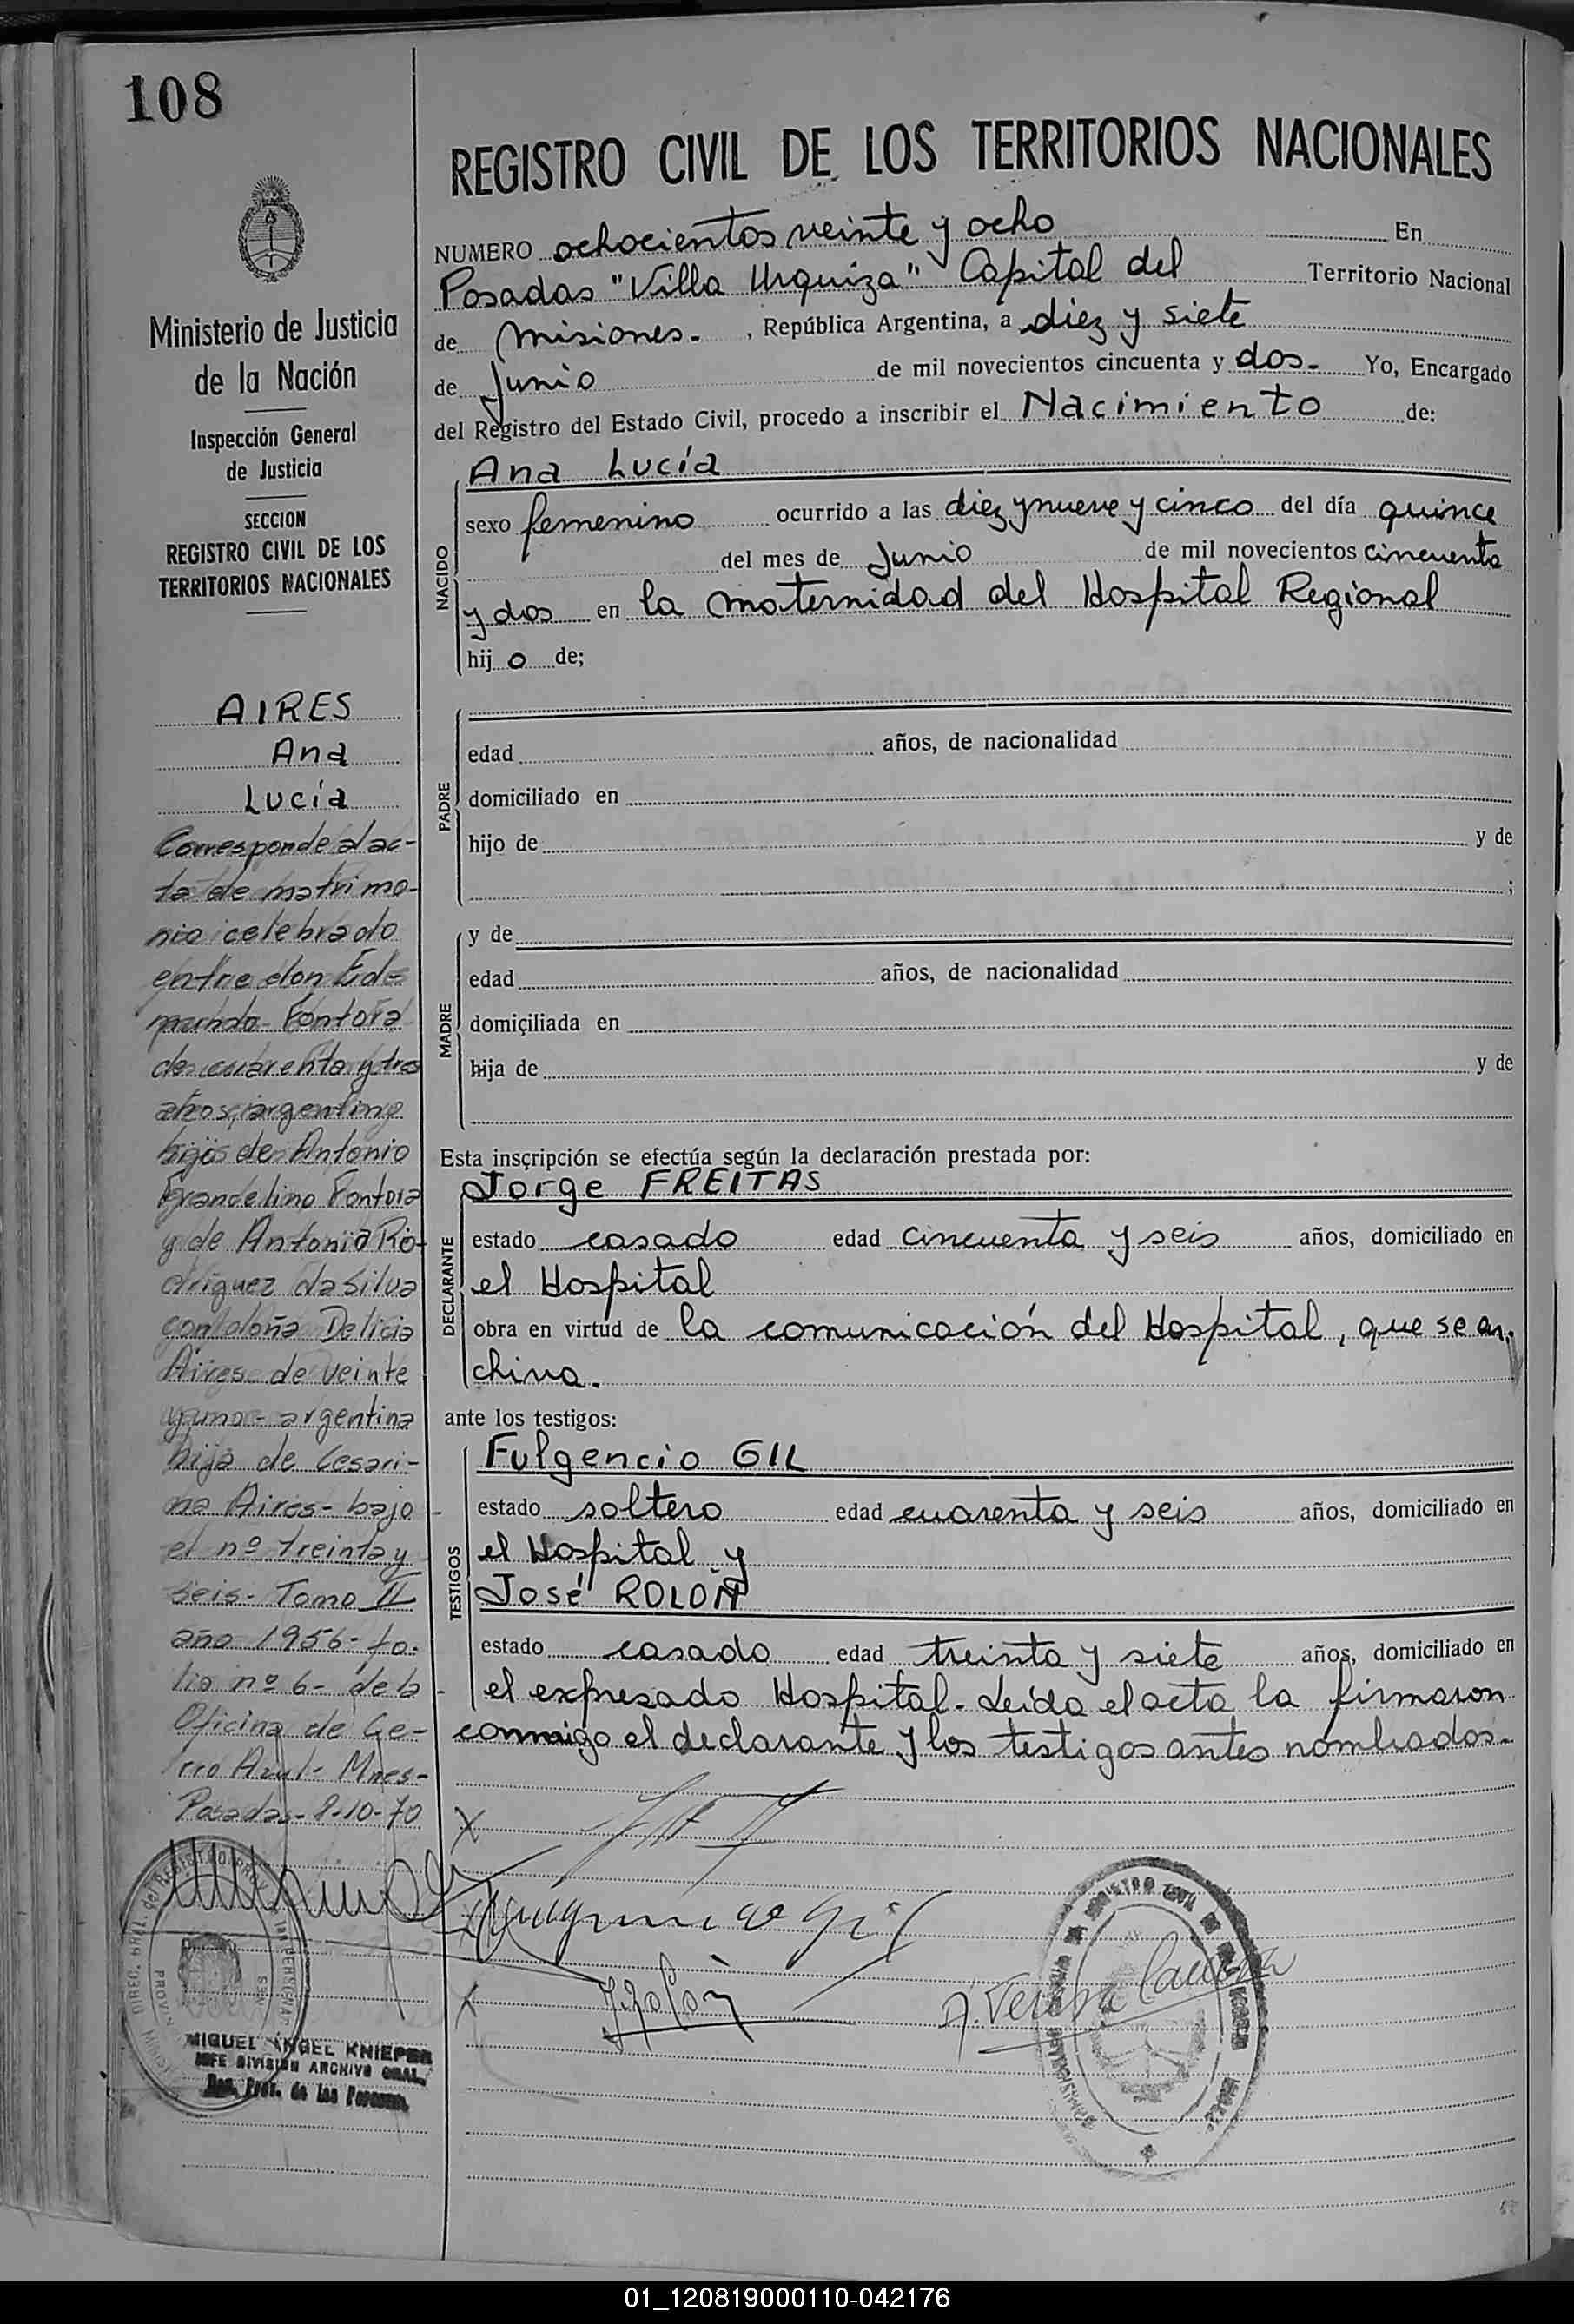 108
Ministerio de Justicia
de la Nación
Inspección General
de Justicia
SECCION
REGISTRO CIVIL DE LOS
TERRITORIOS NACIONALES
AIRES
Ana
Lucía
Corresponde al ac-
ta de matrimo-
nio celebrado
entre don Ed-
mundo Fontora
de cuarenta y tres
años, argentino
hijo de Antonio
Fontora
y de Antonia Ro-
driguez da Silva
con doña Delicia
Aires de veinte
y uno - argentina
hija de Cesari-
na Aires - bajo
el nº treinta y
seis - Tomo II
año 1956 - fo-
lio nº 6 - de la
Oficina de Ce-
rro Azul - Mnes -
Posadas - 8-10-70
MIGUEL ANGEL KNIEPER
JEFE DIVISION ARCHIVO GRAL.
REGISTRO CIVIL DE LOS TERRITORIOS NACIONALES
NUMERO ochocientos veinte y ocho En
Posadas "Villa Urquiza" Capital del Territorio Nacional
de Misiones. , República Argentina, a diez y siete
de Junio de mil novecientos cincuenta y dos. Yo, Encargado
del Registro del Estado Civil, procedo a inscribir el Nacimiento de:
NACIDO
Ana Lucía
sexo femenino ocurrido a las diez y nueve y cinco del día quince
del mes de Junio de mil novecientos cincuenta
y dos en la maternidad del Hospital Regional
hij o de;
PADRE
edad años, de nacionalidad
domiciliado en
hijo de y de
;
MADRE
y de
edad años, de nacionalidad
domiciliada en
hija de y de
Esta inscripción se efectúa según la declaración prestada por:
DECLARANTE
Jorge FREITAS
estado casado edad cincuenta y seis años, domiciliado en
el Hospital
obra en virtud de la comunicación del Hospital, que se ar-
chiva.
ante los testigos:
TESTIGOS
Fulgencio GIL
estado soltero edad cuarenta y seis años, domiciliado en
el Hospital y
José ROLON
estado casado edad treinta y siete años, domiciliado en
el expresado Hospital. Leída el acta la firmaron
conmigo el declarante y los testigos antes nombrados.
X
X
01_120819000110-042176